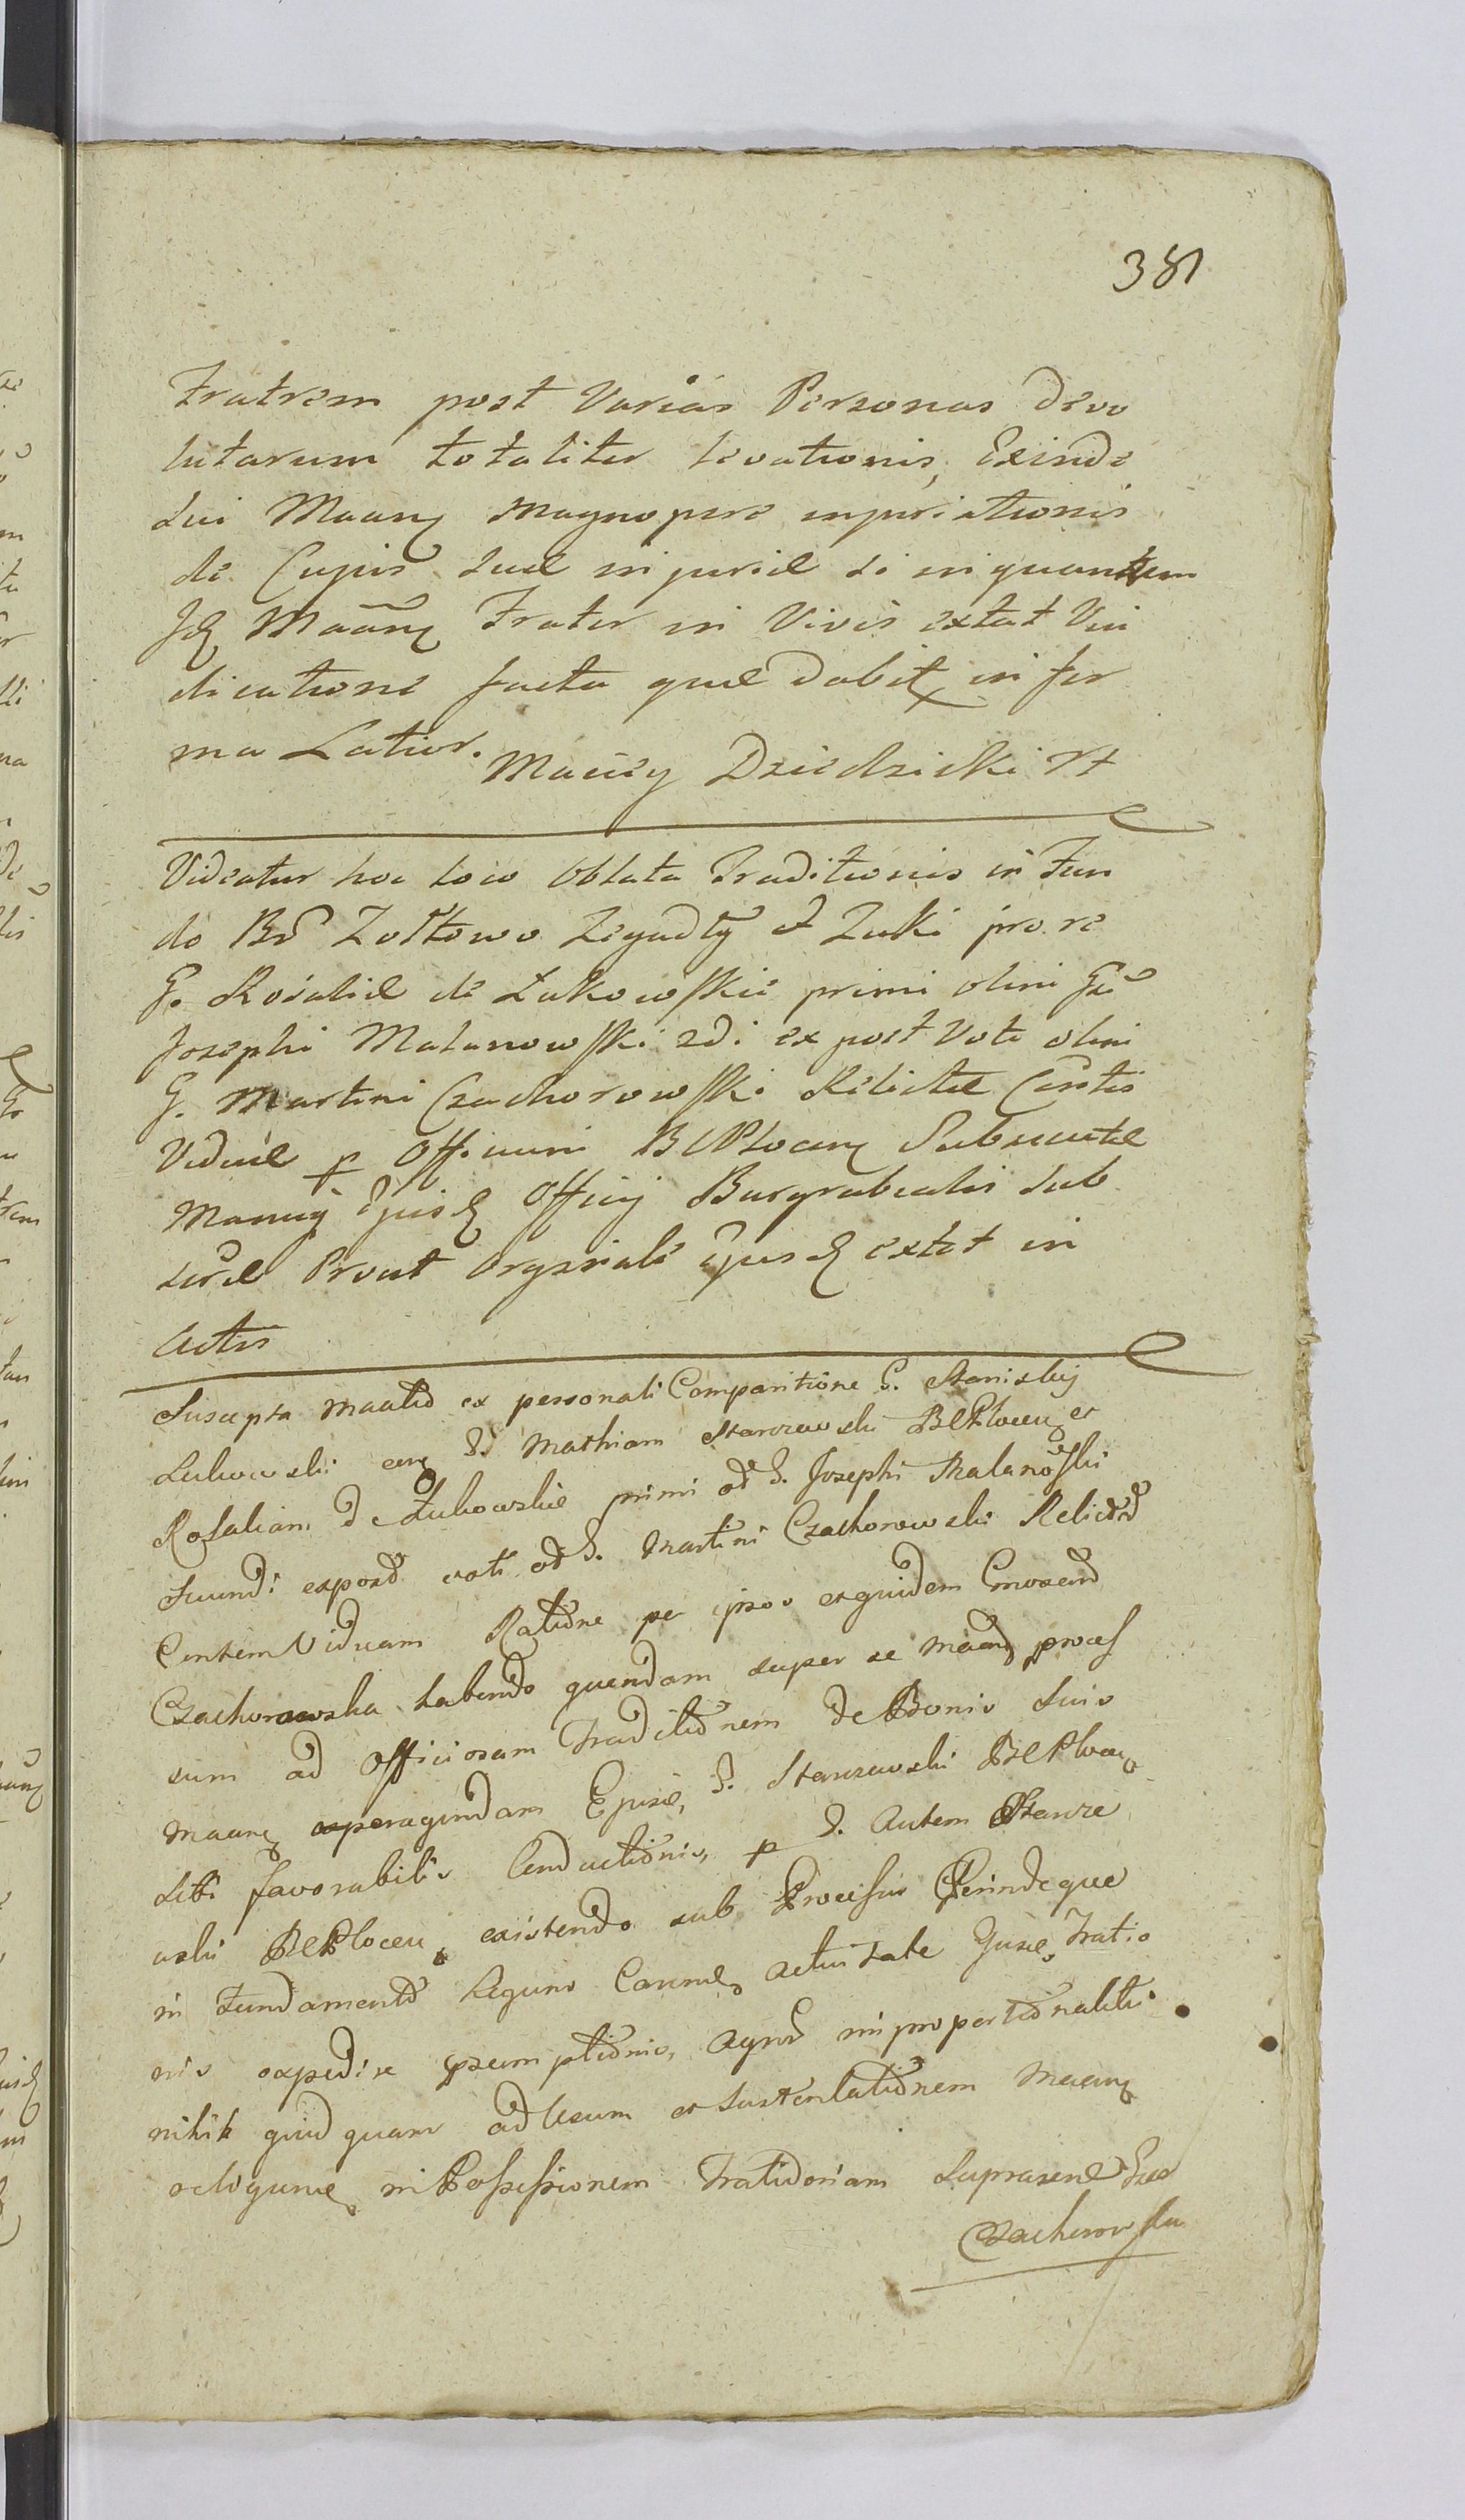 381
Fratrem post Varias Personas devo
lutarum totaliter levationis, Exinde
sui Maanq magnopere injuriationis
de Cujus suae injuriae si inquantum
Jd Maanq Frater in Vivis extat Vin
dicatione facta quae dabit in for
ma Latior.
Maciey Dziedzicki
Videatur hoc loco Oblata Traditionis in Fun
do Br Zołtowo Zegadły et Zuki pro re
G. Rosaliae de Łukowskie primi olim Gsi
Josephi Malanowski 2di ex post Voti olim
G. Martini Czachorowski Relictae Contis
Viduae p Officium BCPlocen Subscriptae
Manuq Ejusd Officij Burgrabialis sub
scrae Prout Oryginale Ejusd extat in
Actis
Suscepta maatio ex personali Comparitione G. Stanislaj
Lukowski erq G. Mathiam Stanzewski BCPlocen et
Rosaliam de Łukowskie primi od G. Josephi Malanowski
secundi expost voti od G. Martini Czachorowski Relictd
Contem Viduam Ratione per ipsos et quidem Gnosam
Czachorowska habendo quendam super se Maand proces
sum ad Officiosam Traditionem de Bonis suis
Maanq peragendam Ejusd, G. Stanzewski BCPlocen
sibi favorabilis Conductionis, p G. Autem Stanze
wski BCPlocen existendo sub Processus Perindeque
in Fundamento Legum Cautae actus Tale Jusd Tratio
nis expedire psumptionis, Agros improportionaliter
nihil quidquam ad Usum et Sustentationem Maanq
relinquens in Possessionem Traditoriam suprascrae Gsae
Czachorowska